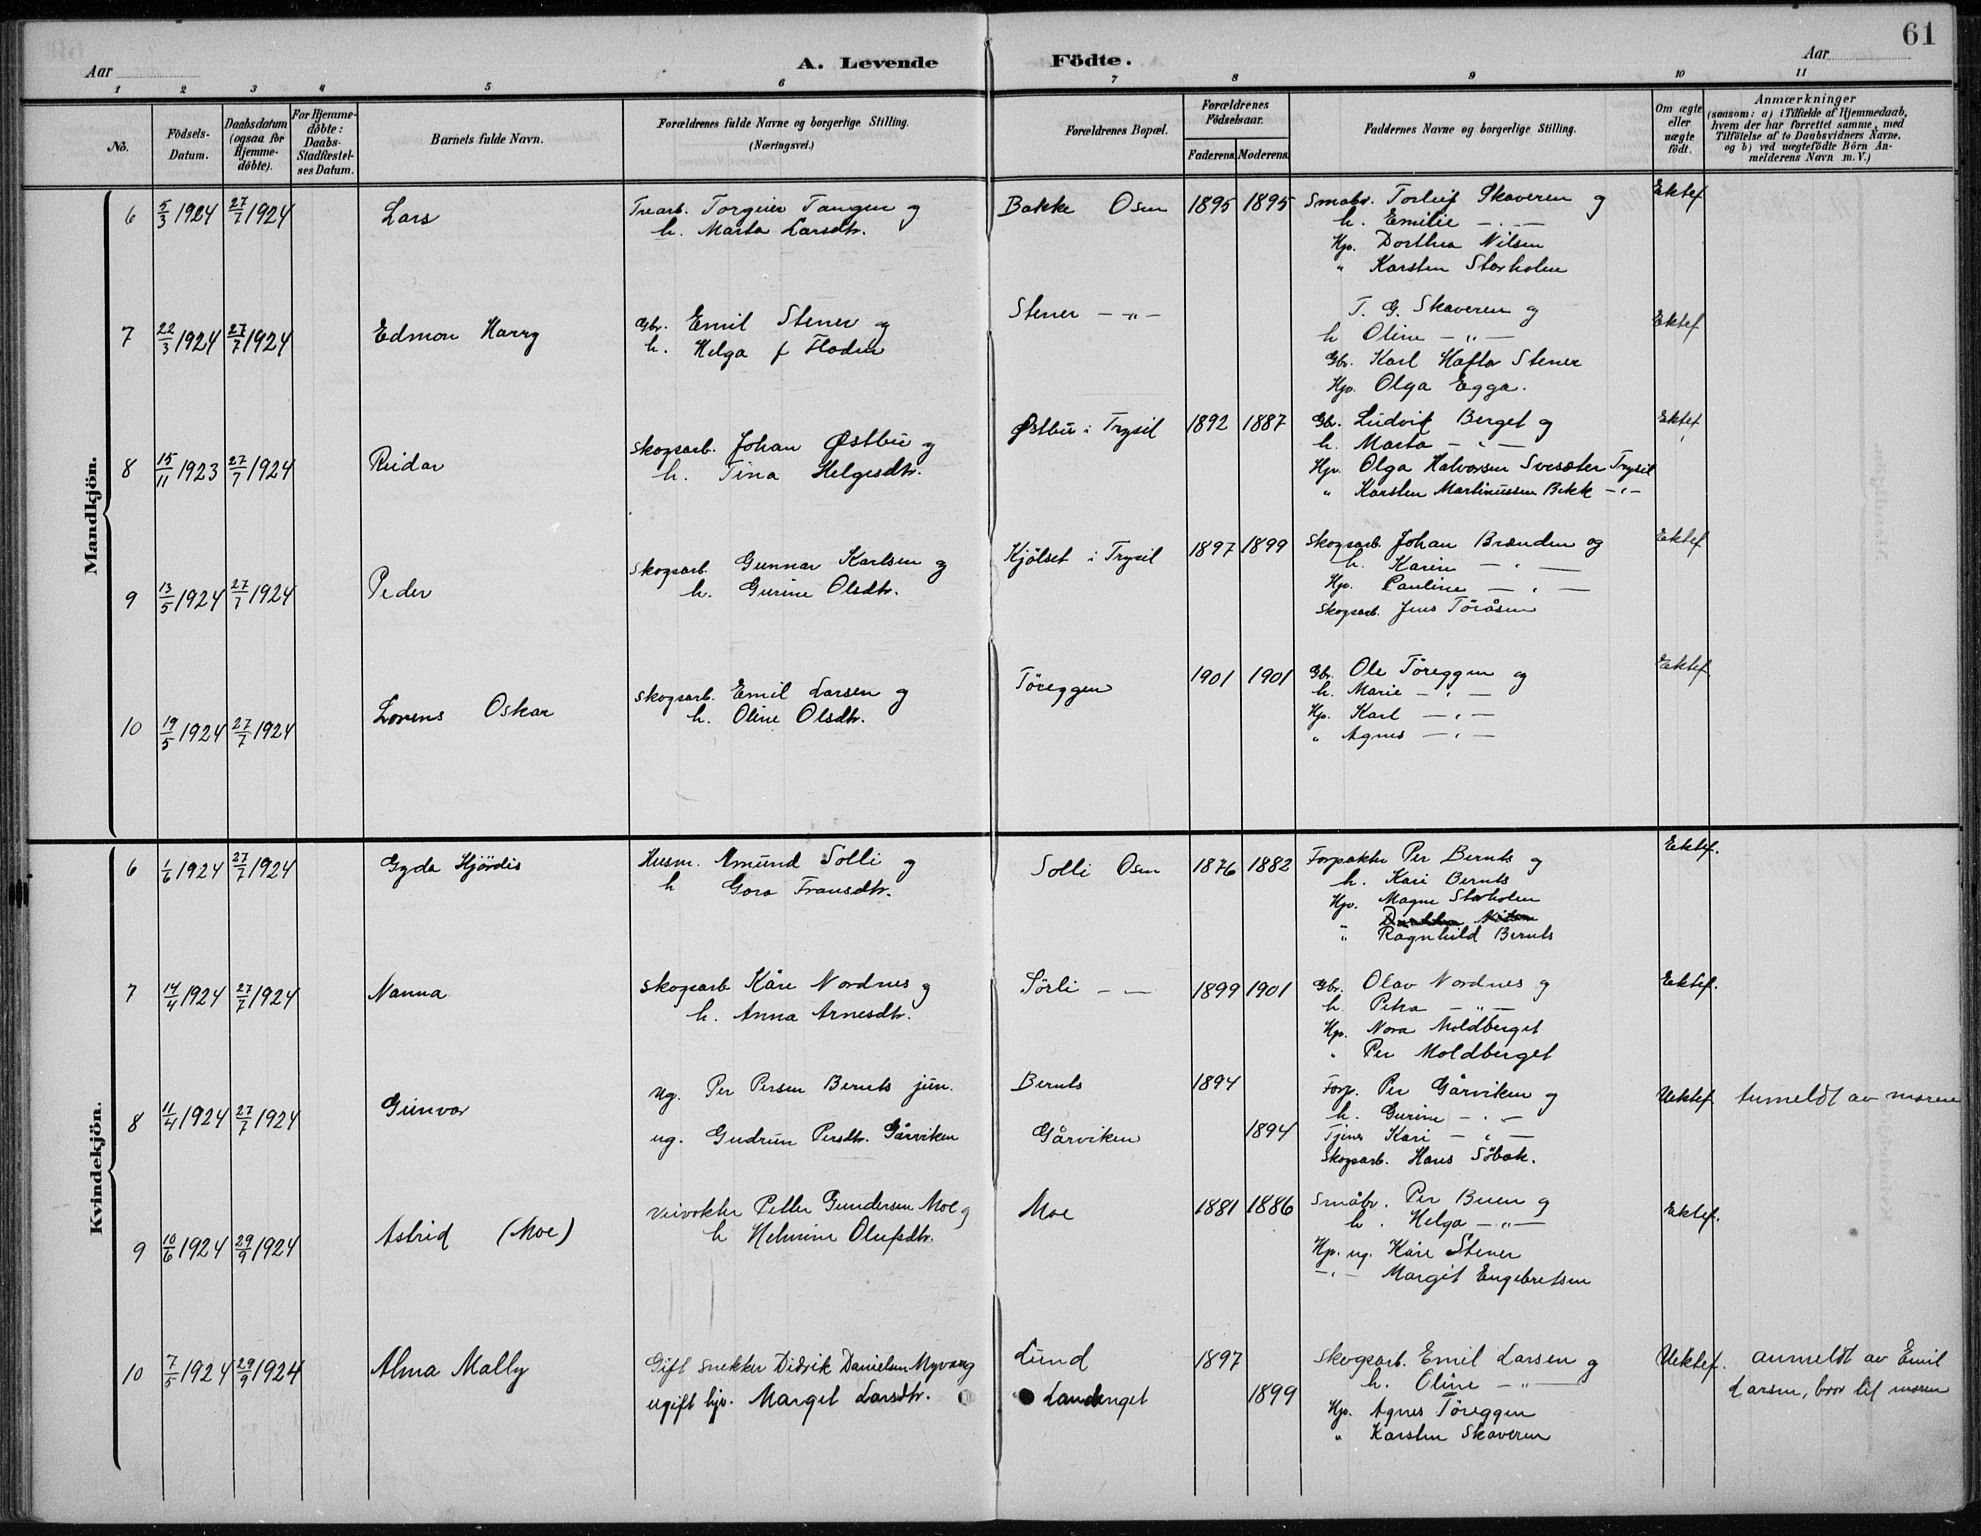 61
Aar
A. Levende Födte.
Aar
1 2 3 4 5 6 7 8 9 10 11
No.
Födsels-Datum.
Daabsdatum (ogsaa för Hjemme-döbte).
For Hjemme-döbte: Daabs-Stadfæstel-ses Datum.
Barnets fulde Navn.
Forældrenes fulde Navne og borgerlige Stilling.
(Næringsvei.)
Forældrenes Bopæl.
Forældrenes Födselsaar.
Faderens. Moderens.
Faddernes Navne og borgerlige Stilling.
Om ægte eller uægte födt.
Anmærkninger
(saasom: a) i Tilfælde af Hjemmedaab, hvem der har forrettet samme, med Tilföielse af to Daabsvidners Navne, og b) ved uægtefödte Börn An-melderens Navn m. V.)
Mandkjön.
6 5/3 1924 27/7 1924 Lars Trearb. Torgeir Tangen og Bakke Osen 1895 1895 Småbr. Torleif Skaveren og Ektef
h. Marta Larsdtr. h. Emilie — " —
Hp. Dorthea Nilsen
" Karsten Storholen
7 22/3 1924 27/7 1924 Edmon Harry Gbr. Emil Stener og Stener — " — T. G. Skaveren og Ektef
h. Helga f Floden h Oline — " —
Gbr. Karl Hafto Stener
Hp. Olga Egga.
8 15/11 1923 27/7 1924 Reidar Skogsarb. Johan Østbu og Østbu i Trysil 1892 1887 Gbr. Ludvik Berget og Ektef
h. Tina Helgesdtr. h. Marta — " —
Hp. Olga Halvorsen Svesæter Trysil
" Karsten Martinussen Bekk — " —
9 13/5 1924 27/7 1924 Peder Skogsarb. Gunnar Karlsen og Kjölset i Trysil 1897 1899 Skogsarb. Johan Brænden og Ektef
h. Gurine Olsdtr. h. Karin — " —
Hp. Pauline — " —
Skogsarb. Jens Töråsen
10 19/5 1924 27/7 1924 Lorens Oskar Skogsarb. Emil Larsen og Töreggen 1901 1901 Gbr. Ole Töreggen og Ektef
h. Oline Olsdtr. h. Marie — " —
Hp. Karl — " —
" Agnes — " —
Kvindekjön.
6 1/6 1924 27/7 1924 Gyda Hjördis Husm. Amund Solli og Solli Osen 1876 1882 Forpakter Per Bernts og Ektef.
h Gora Fransdtr. h. Kari Bernts
Hp. Magne Storholen
" Ragnhild Bernts
7 14/4 1924 27/7 1924 Nanna Skogsarb Kåre Nordnes og Sörli — — 1899 1901 Gbr. Olav Nordnes og Ektef.
h. Anna Arnesdtr. h. Petra — " —
Hp. Nora Moldberget
" Per Moldberget
8 11/4 1924 27/7 1924 Gunvor ug. Per Persen Bernts jun. Bernts 1894 Forp. Per Gårviken og Uektef. anmeldt av moren
h. Gurine — " —
ug. Gudrun Persdtr. Gårviken Gårviken 1894 Tjener Kari — " —
Skogsarb. Hans Söbak.
9 10/6 1924 29/9 1924 Astrid (Moe) Veivokter Petter Gundersen Moe og Moe 1881 1886 Småbr. Per Buen og Ektef.
h Helmine Olufsdtr. h. Helga — " —
Hp. ug. Kåre Stener
— " — Margit Engebretsen
10 7/5 1924 29/9 1924 Alma Mally Gift snekker Didrik Danielsen Myvang Lund 1897 Skogsarb. Emil Larsen og Uektef. anmeldt av Emil
ugift hp. Margit Larsdtr. Landenget 1899 h. Oline — " — Larsen, bror til moren
Hp. Agnes Töreggen
" Karsten Skaveren